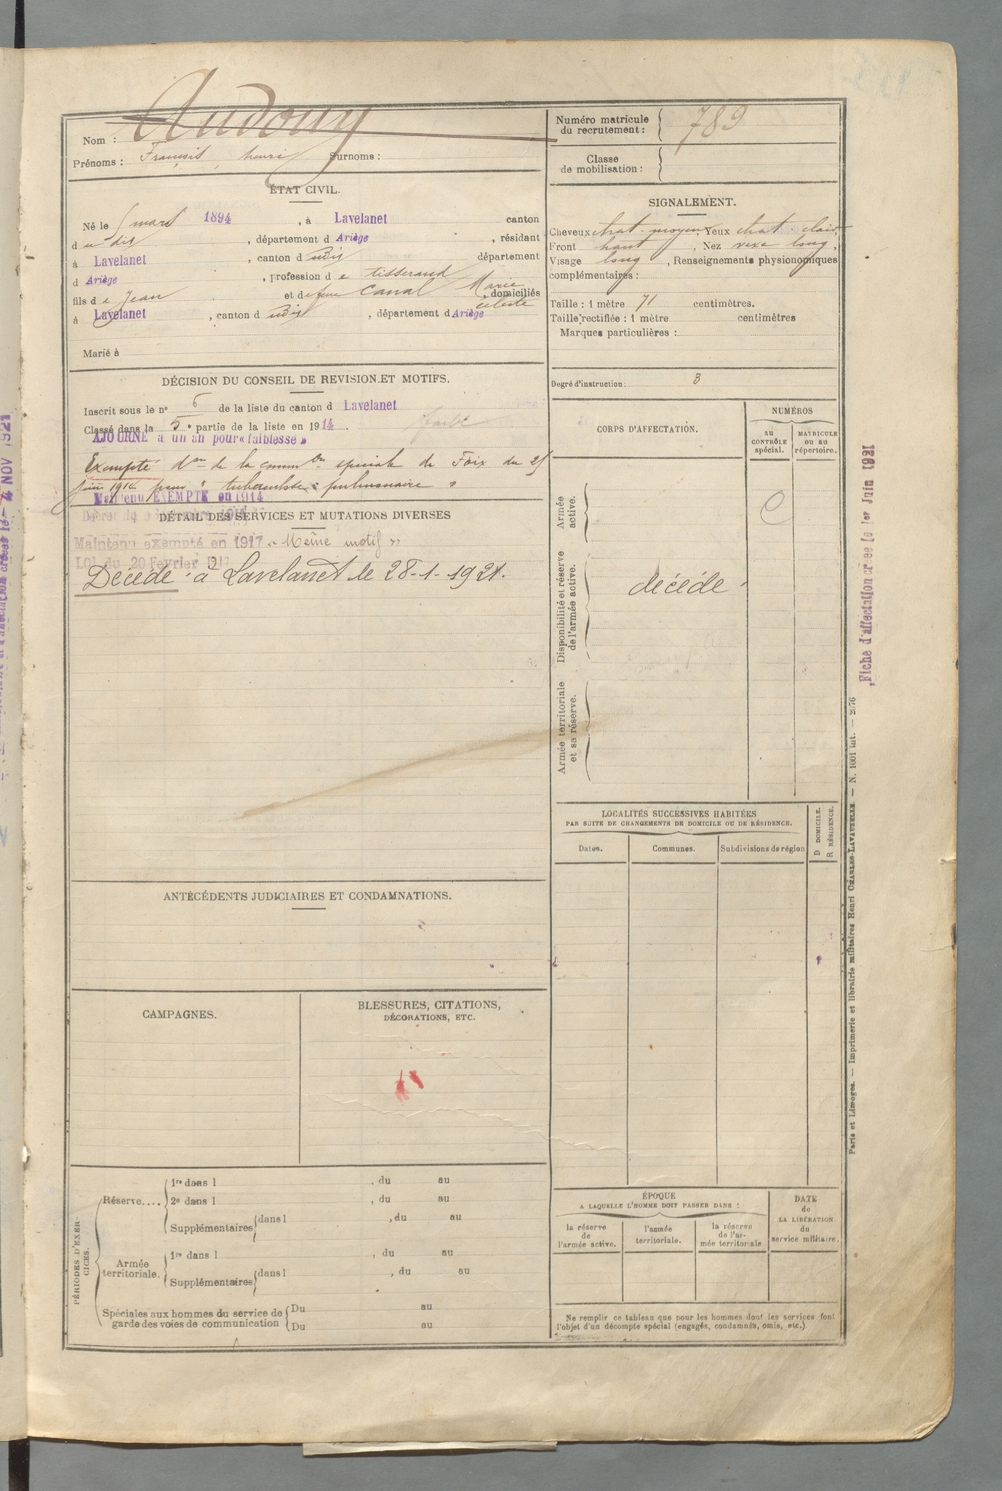 Nom : Audouy
Prénoms : François, henri Surnoms :
Numéro matricule du recrutement : 789
Classe de mobilisation :
ÉTAT CIVIL.
Né le mars 1894, à Lavelanet canton
d u dit, département d Ariège, résidant
à Lavelanet, canton d udit département
d Ariège, profession d e tisserand
fils d e Jean et de feue Canal Marie céleste domiciliés
à Lavelanet, canton d udit, département d Ariège
Marié à
SIGNALEMENT.
Cheveux chat. moyen, Yeux chat. clair
Front haut, Nez vexe long,
Visage long, Renseignements physionomiques
complémentaires :
Taille : 1 mètre 71 centimètres.
Taille rectifiée : 1 mètre centimètres
Marques particulières :
Degré d'instruction : 3
DÉCISION DU CONSEIL DE REVISION ET MOTIFS.
Inscrit sous le n° 6 de la liste du canton d Lavelanet
Classé dans la 5e partie de la liste en 1914.
AJOURNÉ à un an pour « faiblesse »
Exempté don de la comm on spéciale de Foix du
juin 1916 pour " tuberculose pulmonaire "
Maintenu EXEMPTÉ en 1914
DÉTAIL DES SERVICES ET MUTATIONS DIVERSES
Maintenu exempté en 1917 « Même motif »
Loi du 20 Février 1917
Décédé à Lavelanet le 28-1-1921.
CORPS D'AFFECTATION.
NUMÉROS
au contrôle spécial.
MATRICULE ou au répertoire.
Armée active.
Disponibilité et réserve de l'armée active.
décédé
Armée territoriale et sa réserve.
LOCALITÉS SUCCESSIVES HABITÉES
PAR SUITE DE CHANGEMENTS DE DOMICILE OU DE RÉSIDENCE.
Dates.
Communes.
Subdivisions de région
D DOMICILE.
R RÉSIDENCE.
ANTÉCÉDENTS JUDICIAIRES ET CONDAMNATIONS.
CAMPAGNES.
BLESSURES, CITATIONS,
DÉCORATIONS, ETC.
PÉRIODES D'EXERCICES.
Réserve....
1re dans l , du au
2e dans l , du au
Supplémentaires dans l , du au
Armée territoriale.
1re dans l , du au
Supplémentaires dans l , du au
Spéciales aux hommes du service de garde des voies de communication
Du au
Du au
ÉPOQUE
A LAQUELLE L'HOMME DOIT PASSER DANS :
la réserve de l'armée active.
l'armée territoriale.
la réserve de l'armée territoriale
DATE de LA LIBÉRATION du service militaire.
Ne remplir ce tableau que pour les hommes dont les services font
l'objet d'un décompte spécial (engagés, condamnés, omis, etc.).
Fiche d'affectation créée le 1er Juin 1921
Paris et Limoges. — Imprimerie et librairie militaires Henri CHARLES-LAVAUZELLE. — N. 1001 int. — 2576
4 NOV 1921